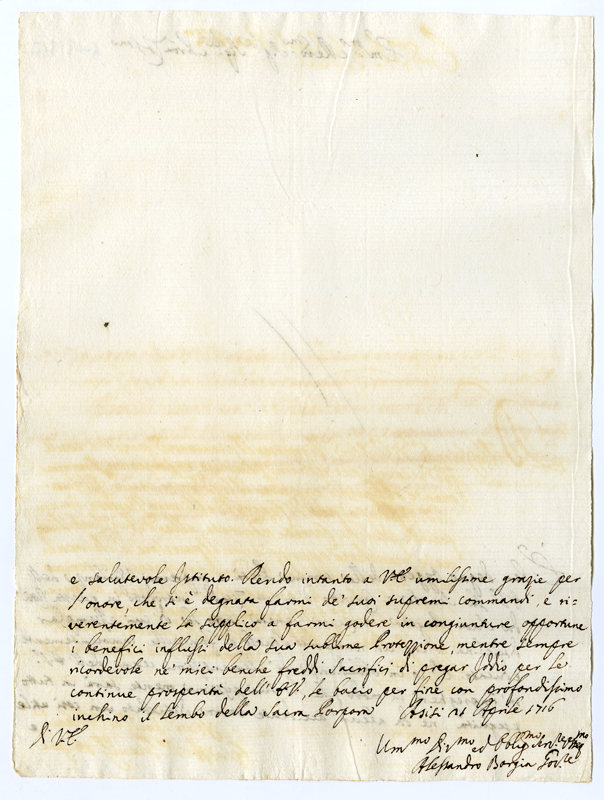 e salutevole Istituto. Rendo intanto a V.E. umilissime grazie per
l'onore, che si è degnata farmi de' suoi supremi commandi, e ri-
verentemente La supplico a farmi godere in congiunture opportune
i benefici influssi della sua sublime Protezzione, mentre sempre
ricordevole ne' miei benche freddi sacrifici di pregar Iddio per le
continue prosperità dell' E.V. le bacio per fine con profondissimo
inchino il lembo della Sacra Porpora Asisi 21 Aprile 1716
Di V.E.
Um.mo Di.mo ed Obblig.mo
Alessandro Borgia Gov.re